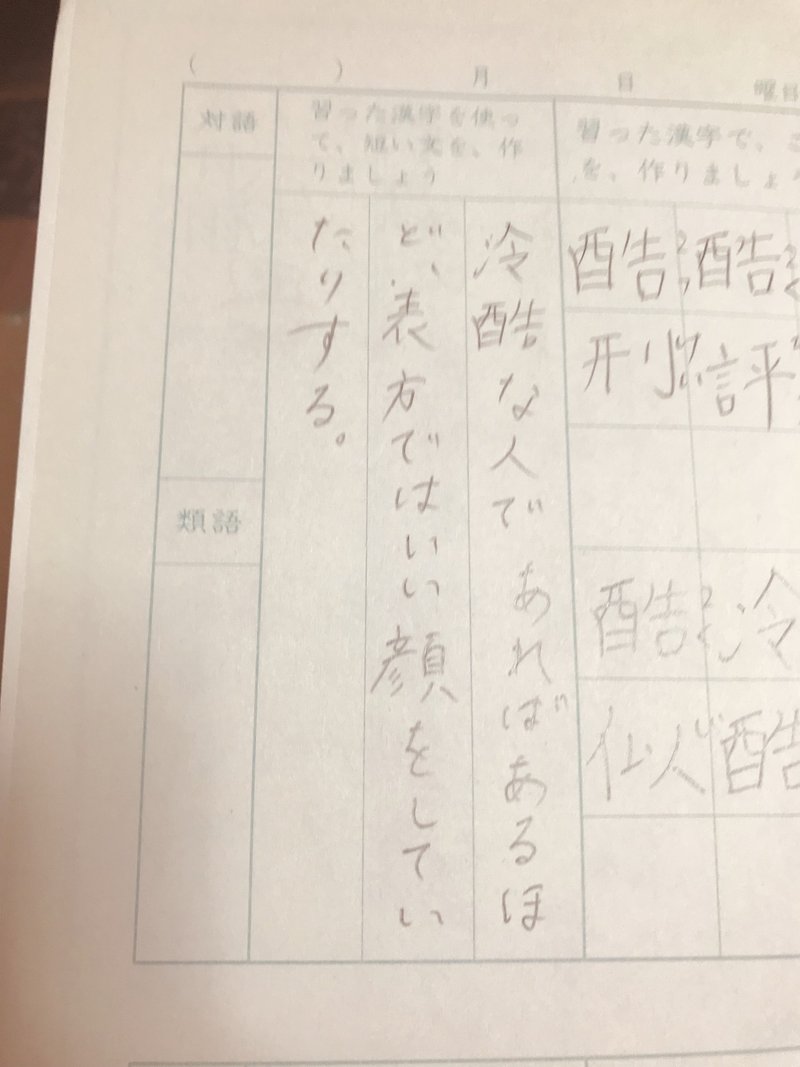 (　　　)　月　日　曜日
習った漢字で、
を、作りましょ
酷評
酷刑
冷酷
酷似
習った漢字を使っ
て、短い文を、作
りましょう
冷酷な人であればあるほ
ど、表方ではいい顔をしてい
たりする。
対語
類語